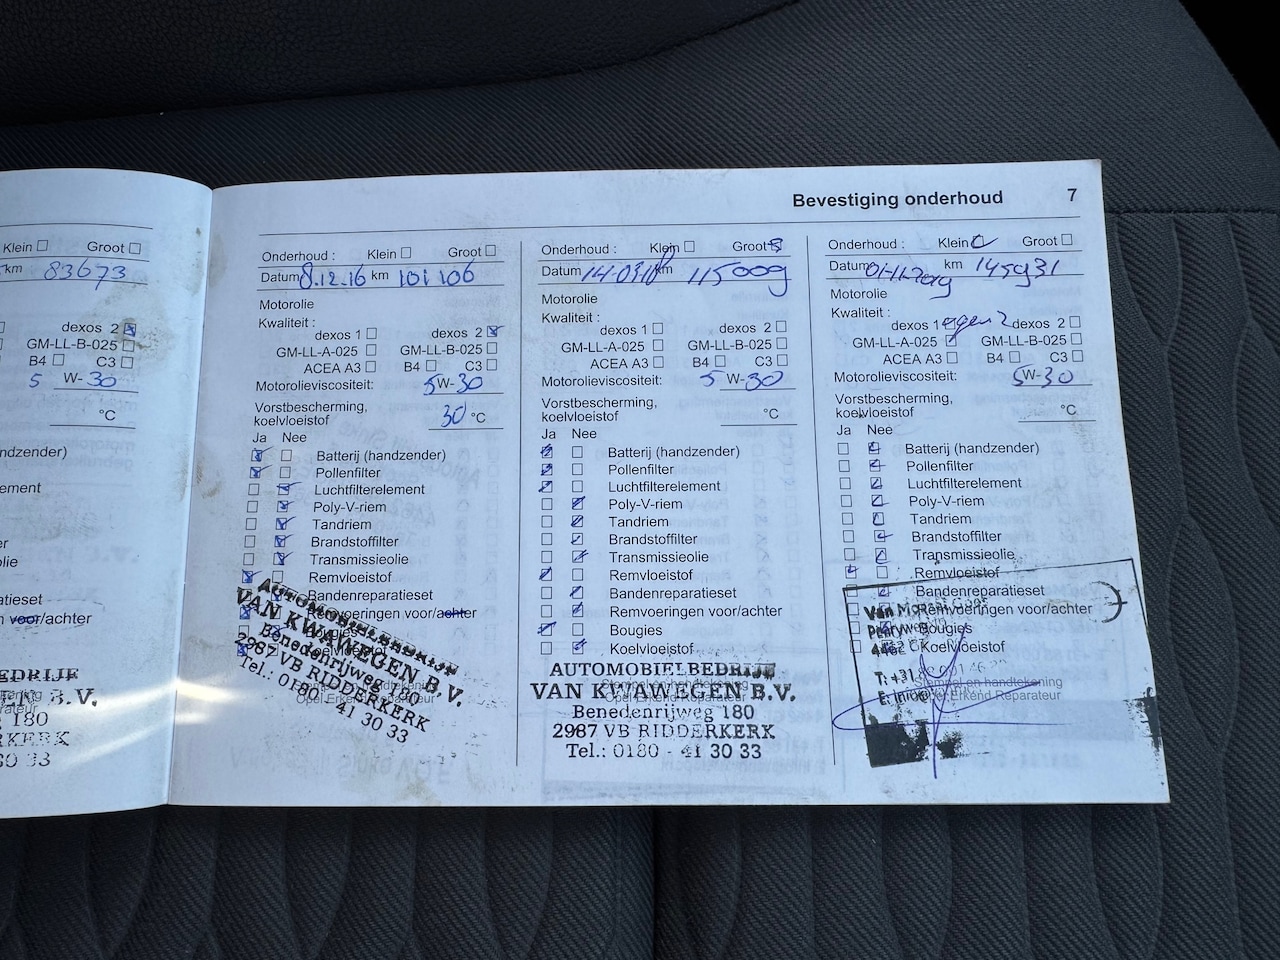 Bevestiging onderhoud 7
Klein Groot
km 83673
dexos 2
GM-LL-B-025
B4 C3
5 W-30
°C
ndzender)
ement
er
olie
ratieset
n voor/achter
EDRIJF
B.V.
180
Onderhoud : Klein Groot
Datum 8.12.16 km 101106
Motorolie
Kwaliteit :
dexos 1 dexos 2
GM-LL-A-025 GM-LL-B-025
ACEA A3 B4 C3
Motorolieviscositeit: 5W-30
Vorstbescherming,
koelvloeistof 30 °C
Ja Nee
Batterij (handzender)
Pollenfilter
Luchtfilterelement
Poly-V-riem
Tandriem
Brandstoffilter
Transmissieolie
Remvloeistof
Bandenreparatieset
Remvoeringen voor/achter
Bougies
Koelvloeistof
AUTOMOBIELBEDRIJF
VAN KWAWEGEN B.V.
Benedenrijweg 180
2987 VB RIDDERKERK
Tel.: 0180 - 41 30 33
Opel Erkend Reparateur
Onderhoud : Klein Groot
Datum km 115009
Motorolie
Kwaliteit :
dexos 1 dexos 2
GM-LL-A-025 GM-LL-B-025
ACEA A3 B4 C3
Motorolieviscositeit: 5 W-30
Vorstbescherming,
koelvloeistof °C
Ja Nee
Batterij (handzender)
Pollenfilter
Luchtfilterelement
Poly-V-riem
Tandriem
Brandstoffilter
Transmissieolie
Remvloeistof
Bandenreparatieset
Remvoeringen voor/achter
Bougies
Koelvloeistof
AUTOMOBIELBEDRIJF
Stempel en handtekening
VAN KWAWEGEN B.V.
Opel Erkend Reparateur
Benedenrijweg 180
2987 VB RIDDERKERK
Tel.: 0180 - 41 30 33
Onderhoud : Klein Groot
Datum 01-11-2019 km 145931
Motorolie
Kwaliteit :
dexos 1 dexos 2
GM-LL-A-025 GM-LL-B-025
ACEA A3 B4 C3
Motorolieviscositeit: 5W-30
Vorstbescherming,
koelvloeistof °C
Ja Nee
Batterij (handzender)
Pollenfilter
Luchtfilterelement
Poly-V-riem
Tandriem
Brandstoffilter
Transmissieolie
Remvloeistof
Bandenreparatieset
Remvoeringen voor/achter
Bougies
Koelvloeistof
Stempel en handtekening
Opel Erkend Reparateur